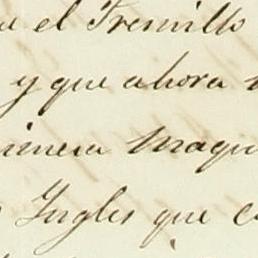 el Fresnillo
y que ahora
imera maqui
Ingles que